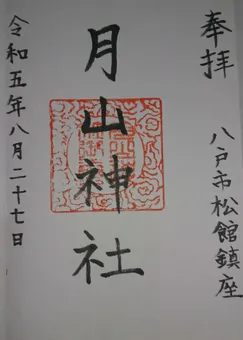 奉拝
八戸市松館鎮座
月山神社
令和五年八月二十七日